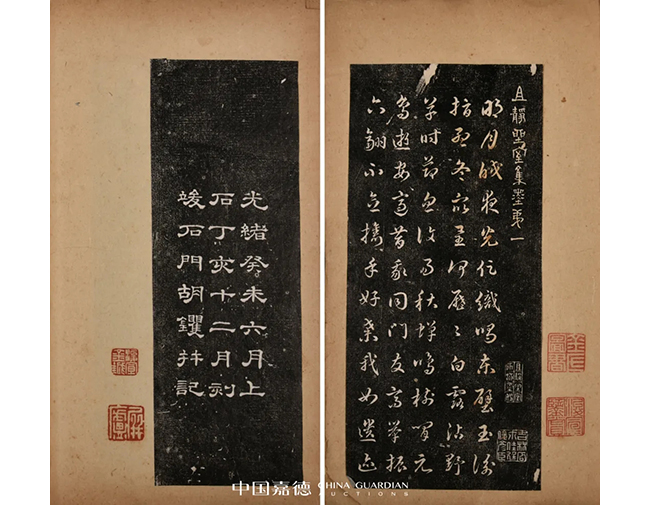 且靜坐室集墨弟一
明月皎夜光促織鳴東壁玉衡
指孟冬衆星何歷〻白露沾野
草時節忽復易秋蟬鳴樹間元
鳥逝安適昔我同門友高舉振
六翮不念攜手好棄我如遺迹
光緒癸未六月上
石丁亥十二月刻
竣石門胡钁幷記
中国嘉德 CHINA GUARDIAN
AUCTIONS